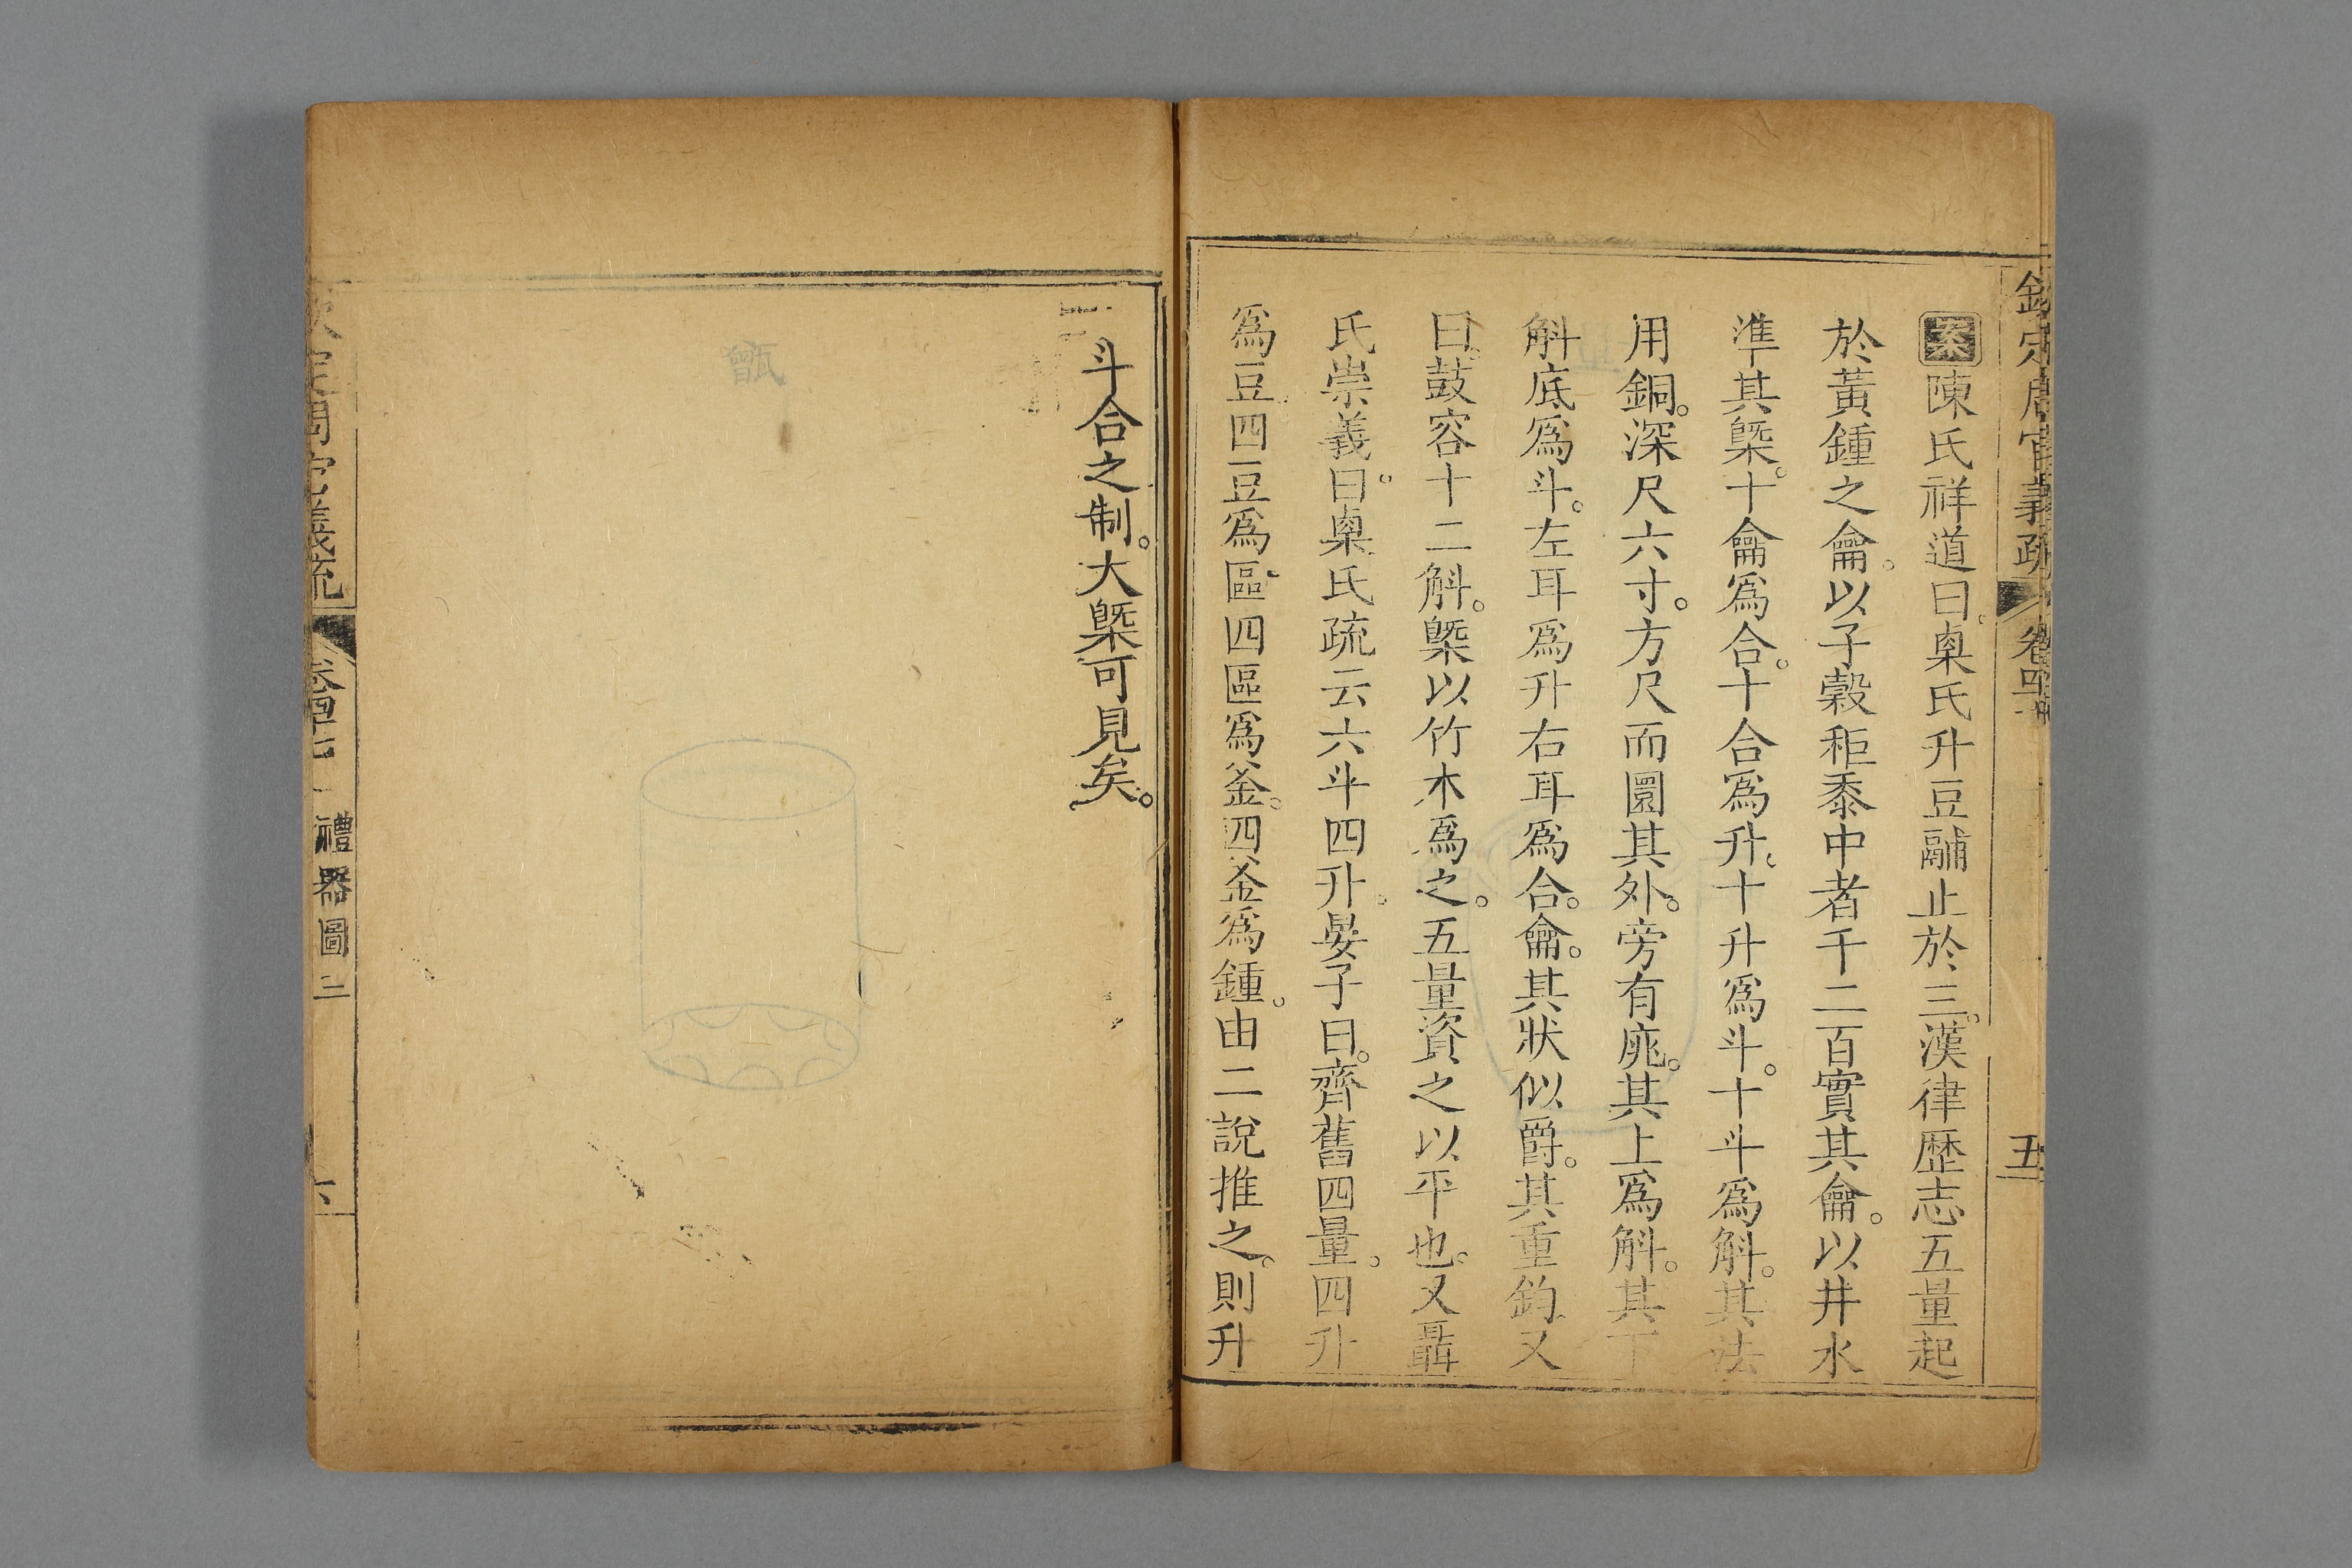 案陳氏祥道曰。㮚氏升豆鬴止於三。漢律歷志五量起
於黃鍾之龠。以子穀秬黍中者千二百實其龠。以井水
準其槩。十龠爲合。十合爲升。十升爲斗。十斗爲斛。其法
用銅。深尺六寸。方尺而圜其外。旁有庣。其上爲斛。其下
斛底爲斗。左耳爲升右耳爲合。龠。其狀似爵。其重鈞又
曰。鼓容十二斛。槩以竹木爲之。五量資之以平也。又聶
氏崇義曰。㮚氏疏云六斗四升。晏子曰。齊舊四量。四升
爲豆四豆爲區四區爲釜。四釜爲鍾。由二說推之。則升
五
斗合之制。大槩可見矣。
禮器圖三
甑